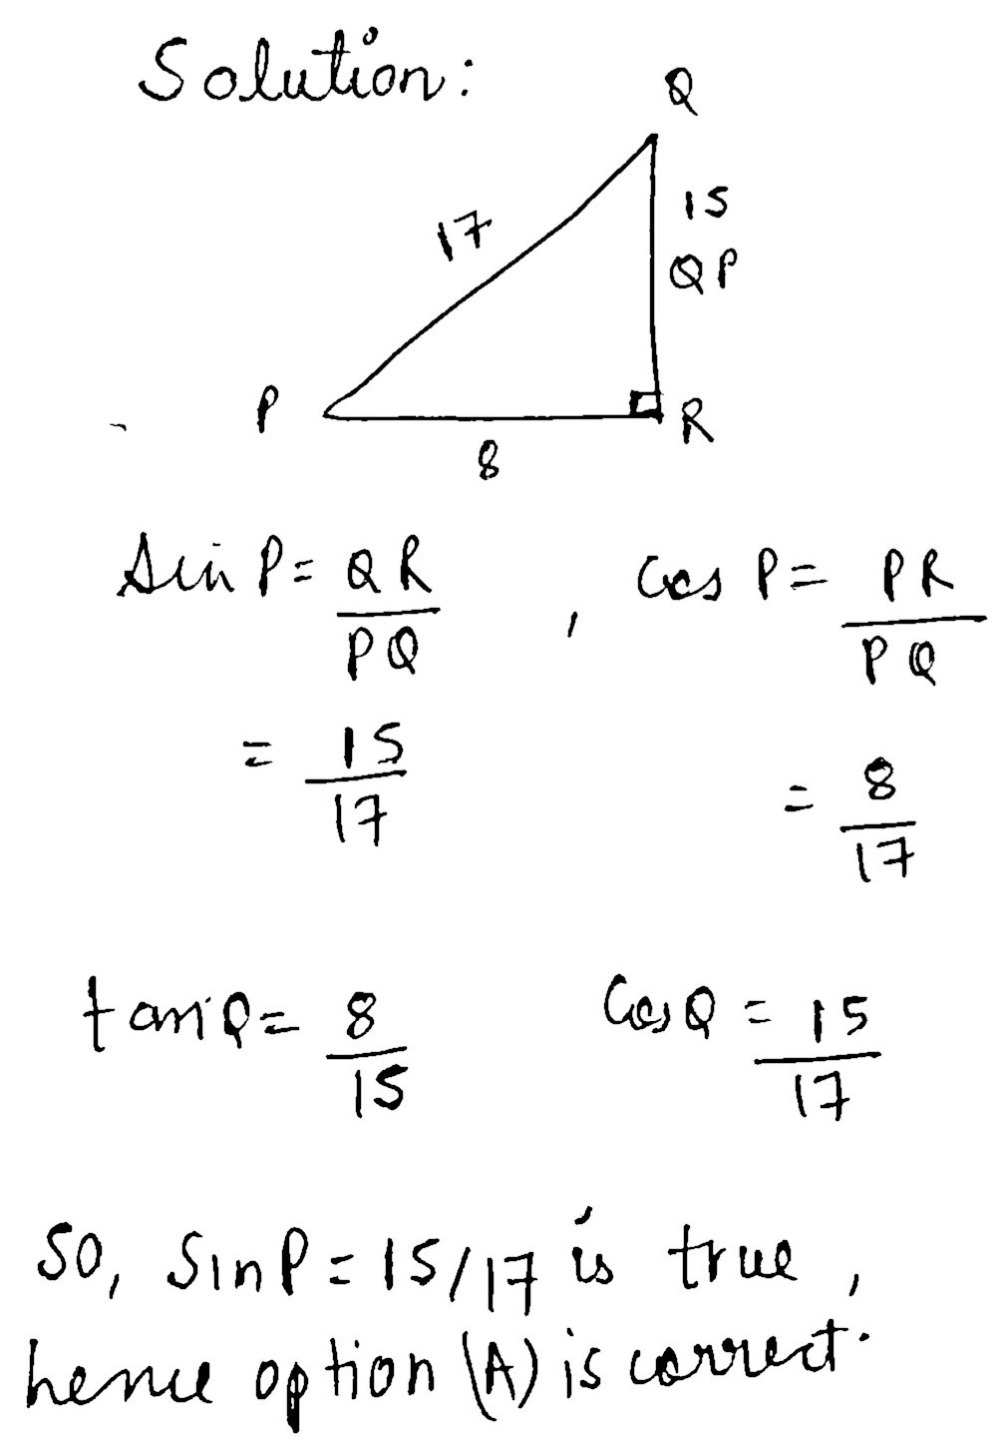 Solution:
Q
17
15
QP
P
R
8
sin P = QR/PQ , Cos P = PR/PQ
= 15/17
= 8/17
tan Q = 8/15 Cos Q = 15/17
So, Sin P = 15/17 is true,
hence option (A) is correct.